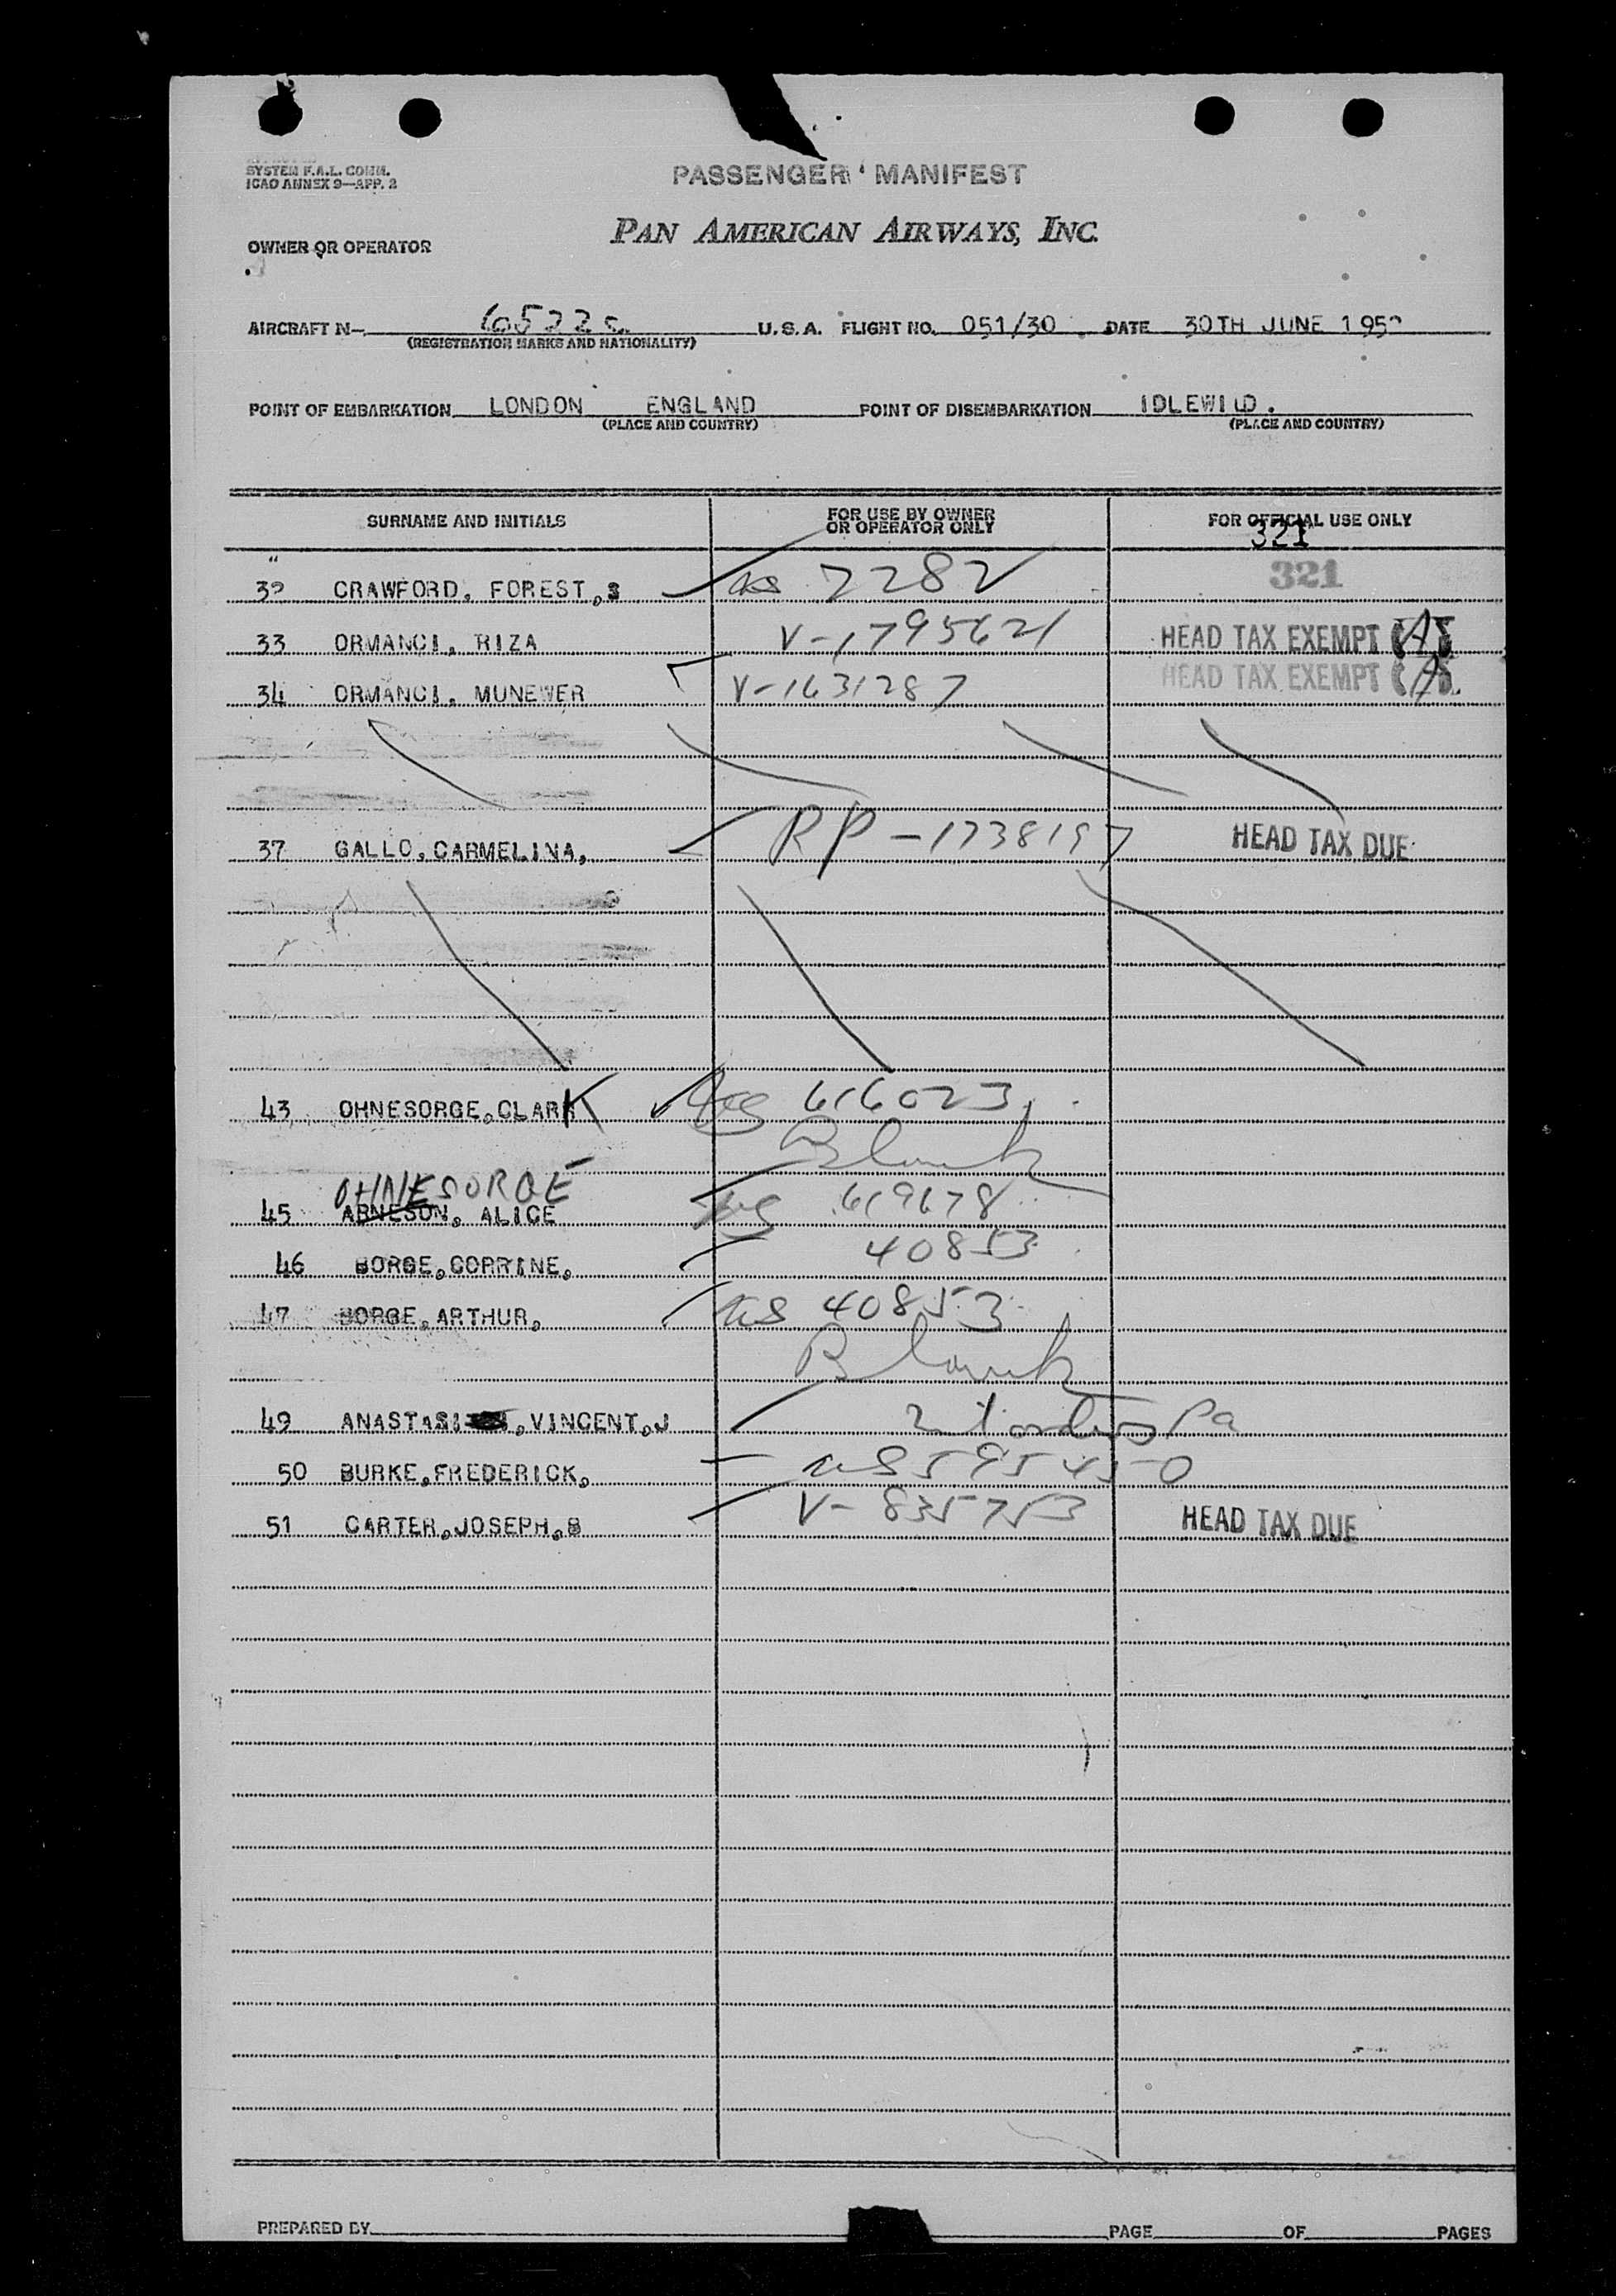 SYSTEM F.A.L. COMM.
ICAO ANNEX 9—APP. 2
PASSENGER MANIFEST
PAN AMERICAN AIRWAYS, INC.
OWNER OR OPERATOR
AIRCRAFT N— U.S.A. FLIGHT NO. 051/30 DATE 30TH JUNE 195
(REGISTRATION MARKS AND NATIONALITY)
POINT OF EMBARKATION LONDON ENGLAND POINT OF DISEMBARKATION IDLEWILD.
(PLACE AND COUNTRY) (PLACE AND COUNTRY)
SURNAME AND INITIALS FOR USE BY OWNER OR OPERATOR ONLY FOR OFFICIAL USE ONLY
321
CRAWFORD, FOREST,S us 7282 321
33 ORMANCI, RIZA V-1795621 HEAD TAX EXEMPT (A)
34 ORMANCI, MUNEWER V-1631287 HEAD TAX EXEMPT (A)
37 GALLO,CARMELINA, RP-1738197 HEAD TAX DUE
43 OHNESORGE,CLARK 616023
Blank
OHNESORGE
45 ARNESON, ALICE 619678
46 BORGE,CORRINE, 40853
47 BORGE,ARTHUR, us 40853
Blank
49 ANASTASI,VINCENT,J
50 BURKE,FREDERICK, us 595450
51 CARTER,JOSEPH,B V-835753 HEAD TAX DUE
PREPARED BY PAGE OF PAGES